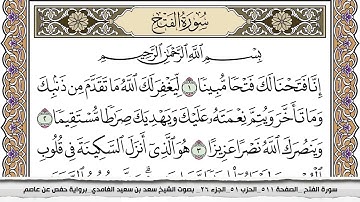 سورة الفتح
بسم الله الرحمن الرحيم
إِنَّا فَتَحْنَا لَكَ فَتْحًا مُّبِينًا ١ لِّيَغْفِرَ لَكَ اللَّهُ مَا تَقَدَّمَ مِن ذَنبِكَ
وَمَا تَأَخَّرَ وَيُتِمَّ نِعْمَتَهُ عَلَيْكَ وَيَهْدِيَكَ صِرَاطًا مُّسْتَقِيمًا ٢
وَيَنصُرَكَ اللَّهُ نَصْرًا عَزِيزًا ٣ هُوَ الَّذِي أَنزَلَ السَّكِينَةَ فِي قُلُوبِ
سورة الفتح _الصفحة ٥١١_الحزب ٥١_الجزء ٢٦_ بصوت الشيخ سعد بن سعيد الغامدي_برواية حفص عن عاصم